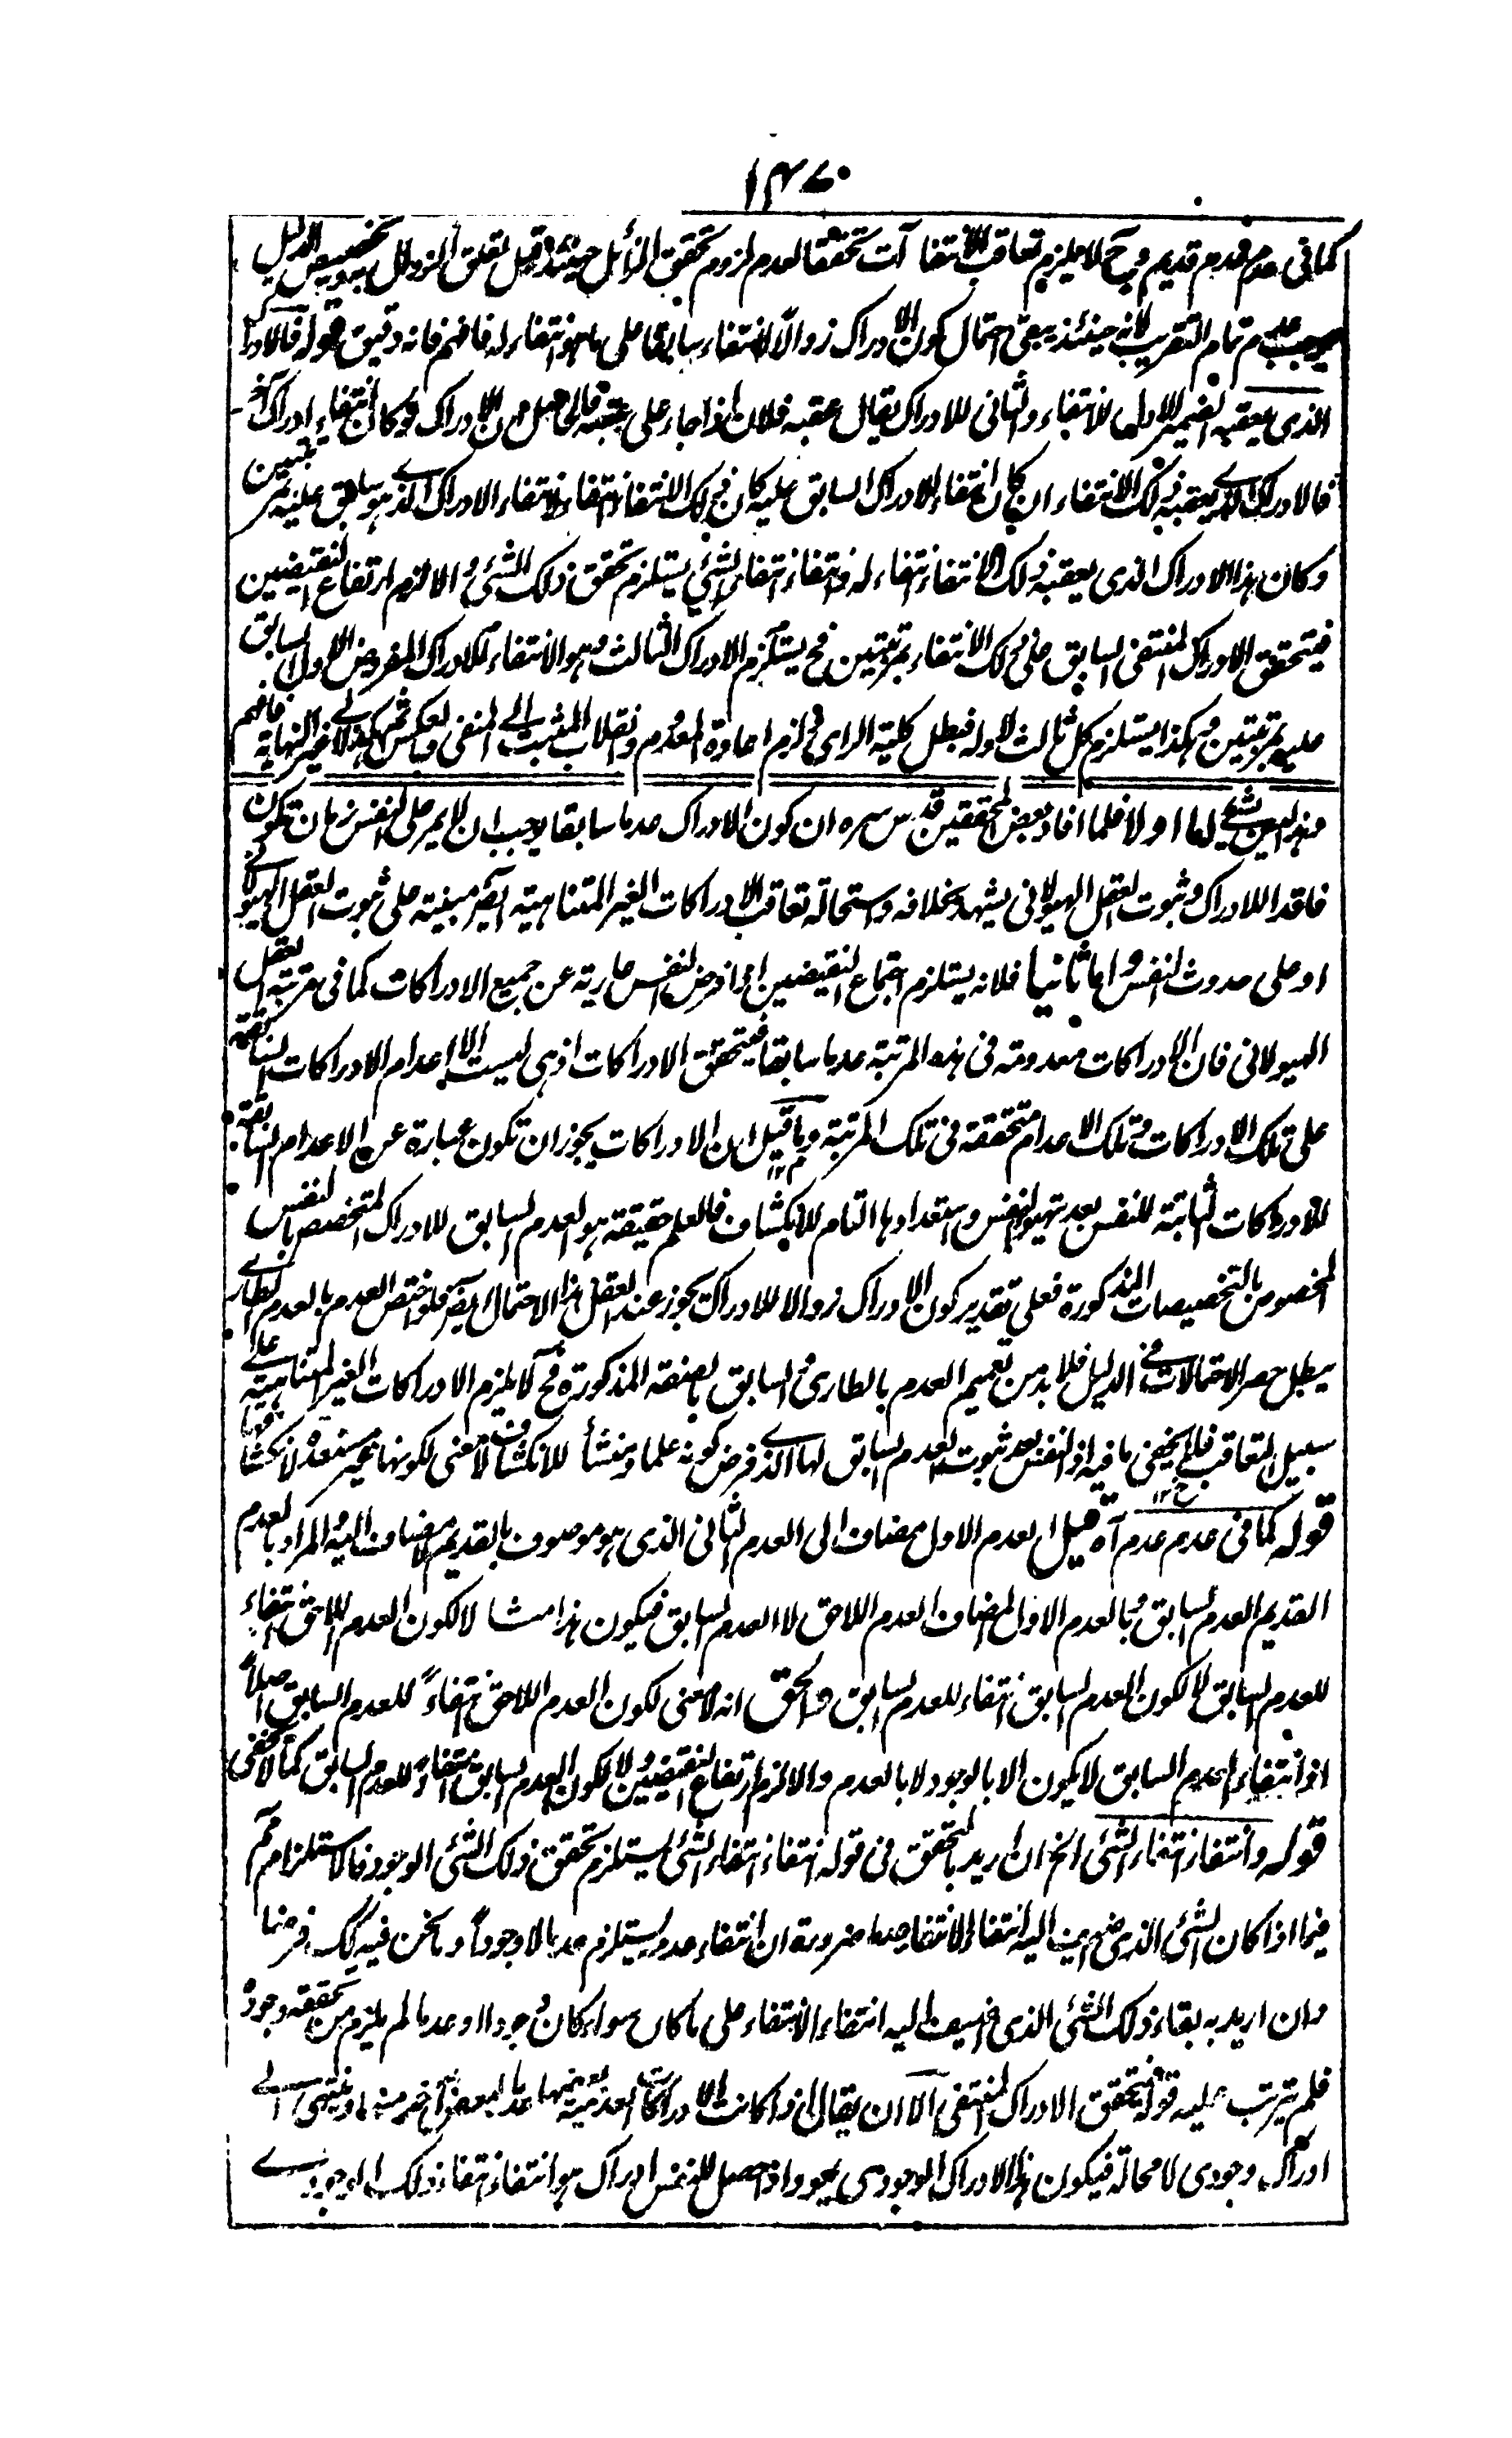 كما فى عدم عدم قديم وح لا يلزم تعاقب الانتفاآت تحققا لعدم لزوم تحقق الزائل حينئذ قبل تعلق الزوال به وتخصيص الدليل
يوجب عدم تمام التقريب لانه حينئذ يبقى احتمال كون الادراك زوالا لانتفاء سابقا على ما هو انتفاء له فافهم فانه دقيق قوله فالادراك
الذى يعقبه الضمير الاول للانتفاء والثانى للادراك يقال عقبه فلان اذا جاء على عقبه فالحاصل ان الادراك لو كان انتفاء ادراك آخر
فالادراك الذى يعقبه ذلك الانتفاء ان كان انتفاء الادراك السابق عليه كان ذلك الانتفاء انتفاء لانتفاء الادراك الذى هو سابق عليه بمرتبتين
وكان هذا الادراك الذى يعقبه ذلك الانتفاء انتفاء له وانتفاء انتفاء الشئ يستلزم تحقق ذلك الشئ والا لزم ارتفاع النقيضين
فيتحقق الادراك المنتفى السابق على ذلك الانتفاء بمرتبتين فح يستلزم الادراك الثالث وهو الانتفاء للادراك المفروض الاول السابق
عليه بمرتبتين وهكذا يستلزم كل ثالث لاوله فبطل كلية الراى ولزم اعادة المعدوم وانقلاب المثبت الى المنفى وبالعكس ثم هكذا الى غير النهاية فافهم
هذا ليس بشئ اما اولا فلما افاد بعض المحققين قدس سره ان كون الادراك عدما سابقا يوجب ان لا يمر على النفس زمان تكون
فاقد اللادراك وثبوت العقل الهيولانى يشهد بخلافه واستحالة تعاقب الادراكات الغير المتناهية ايضا مبنية على ثبوت العقل الهيولانى
او على حدوث النفس واما ثانيا فلانه يستلزم اجتماع النقيضين اذا فرض النفس عارية عن جميع الادراكات كما فى مرتبة العقل
الهيولانى فان الادراكات معدومة فى هذه المرتبة عدما سابقا فيتحقق الادراكات اذ هى ليست الا اعدام الادراكات السابقة
على تلك الادراكات وتلك الاعدام متحققة فى تلك المرتبة وما قيل ان الادراكات يجوز ان تكون عبارة عن الاعدام السابقة
للادراكات الثابتة للنفس بعد تهيؤ النفس واستعدادها التام للانكشاف فالعلم حقيقة هو العدم السابق للادراك المتخصص بالنفس
المخصوص بالتخصيصات المذكورة فعلى تقدير كون الادراك زوالا للادراك يجوز عند العقل هذا الاحتمال ايضا فلو اختص العدم بالعدم الطارى
يبطل حصر الاحتمالات فى الدليل فلا بد من تعميم العدم بالطارى والسابق بالصفة المذكورة فح لا يلزم الادراكات الغير المتناهية على
سبيل التعاقب فلا يخفى ما فيه اذ النفس بعد ثبوت العدم السابق لها الذى فرض كونه علما ومنشأ للانكشاف لا معنى لكونها غير مستعدة لانكشافها
قوله كما فى عدم عدم آه قيل العدم الاول مضاف الى العدم الثانى الذى هو موصوف بالقديم لا مضاف اليه والمراد بالعدم
القديم العدم السابق وبالعدم الاول المضاف العدم اللاحق لا العدم السابق فيكون هذا مثالا لكون العدم اللاحق انتفاء
للعدم السابق لا لكون العدم السابق انتفاء للعدم السابق والحق انه لا معنى لكون العدم اللاحق انتفاءً للعدم السابق اصلاً
اذ انتفاء العدم السابق لا يكون الا بالوجود لا بالعدم والا لزم ارتفاع النقيضين ولا لكون العدم السابق انتفاءً للعدم السابق كما لا يخفى
قوله وانتفاء انتفاء الشئ الخ ان اريد بالتحقق فى قوله انتفاء انتفاء الشئ يستلزم تحقق ذلك الشئ الوجود فالاستلزام مم
فيما اذا كان الشئ الذى اضيف اليه انتفاء الانتفاء عدما ضرورة ان انتفاء عدم يستلزم عدما لا وجوداً وما نحن فيه كك فرضا
وان اريد به بقاء ذلك الشئ الذى اضيف اليه انتفاء الانتفاء على ما كان سواء كان وجودا او عدما لم يلزم من تحققه وجوده
فلم يترتب عليه قوله فيتحقق الادراك المنتفى الا ان يقال اذا كانت الادراكات العدمية بعضها عدما لبعض آخر منها وينتهى الى
ادراك وجودى لا محالة فيكون هذا الادراك الوجودى يعود اذا حصل للنفس ادراك هو انتفاء انتفاء ذلك الوجودى